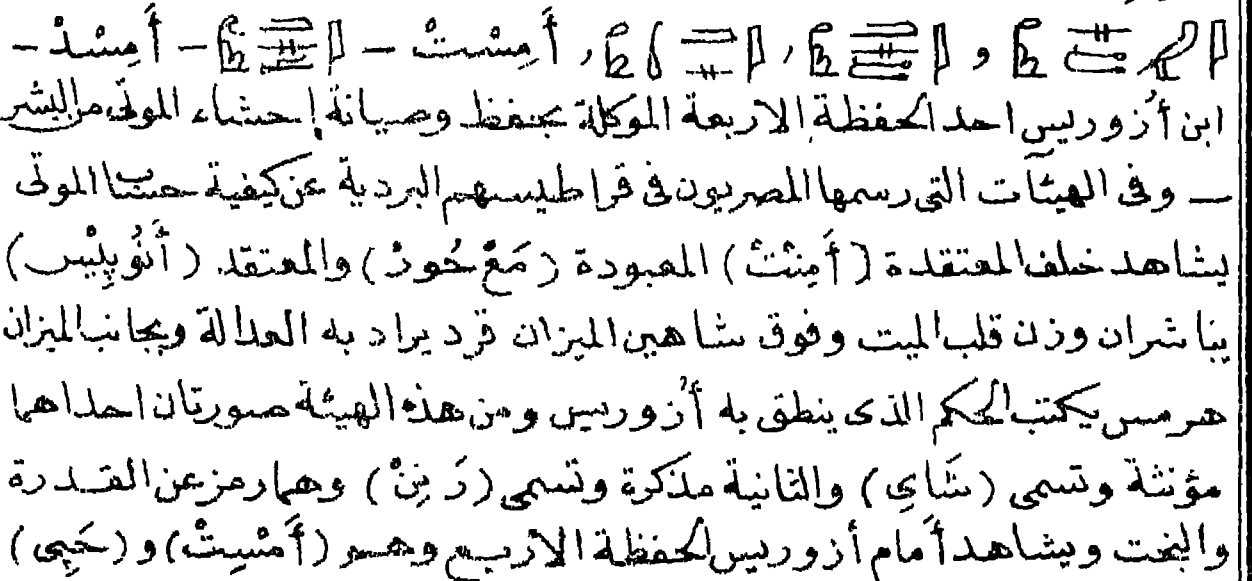 و , , أَمِسْتْ - - أَمِسْدْ -
ابن أُزوريس احد الحفظة الاربعة الموكلة بحفظ وصيانة إحشاء الموتى من البشر
— وفى الهيئات التى رسمها المصريون فى قراطيسهم البردية عن كيفية حساب الموتى
يشاهد خلف المعتقدة (أَمِنْتْ) المعبودة (مَعْ خُورْ) والمعتقد (أَنُوبِيْس)
يباشران وزن قلب الميت وفوق شاهين الميزان قرد يراد به العدالة وبجانب الميزان
هرمس يكتب الحكم الذى ينطق به أُزوريس ومن هذه الهيئة صورتان احداهما
مؤنثة وتسمى (شَايِ) والثانية مذكرة وتسمى (رَنِنْ) وهما رمز عن القدرة
والبخت ويشاهد أمام أزوريس الحفظة الاربع وهم (أَمْسِيتْ) و (حَبِى)